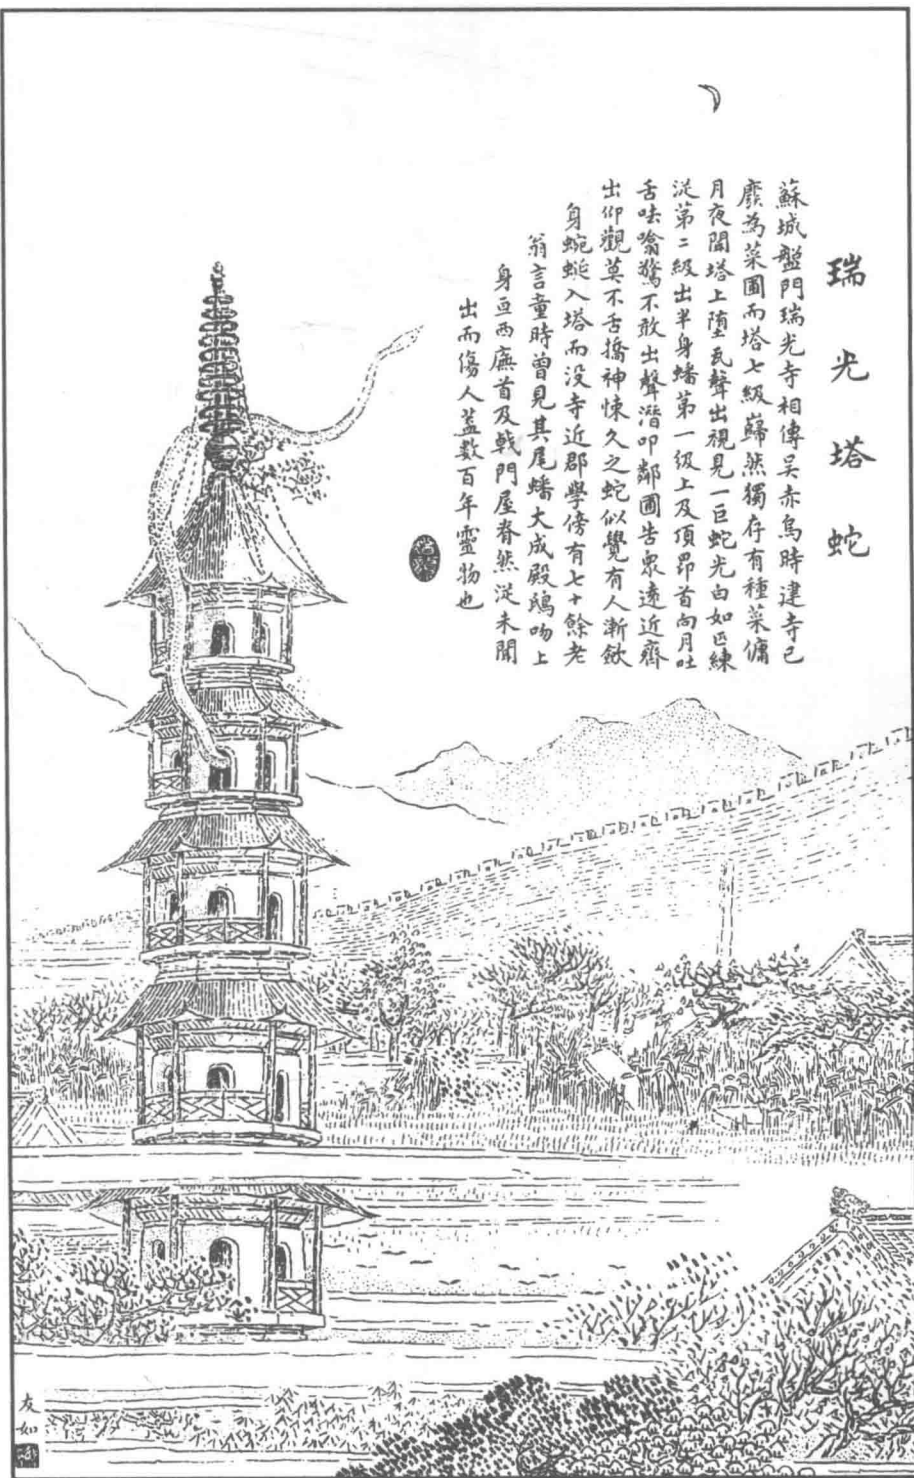 瑞光塔蛇
蘇城盤門瑞光寺相傳吳赤烏時建寺已
廢為菜圃而塔七級巋然獨存有種菜傭
月夜聞塔上墮瓦聲出視見一巨蛇光白如匹練
從第二級出半身蟠第一級上及頂昂首向月吐
舌呿噏驚不敢出聲潛叩鄰圃告衆遠近齊
出仰觀莫不舌撟神悚久之蛇似覺有人漸斂
身蜿蜒入塔而没寺近郡學傍有七十餘老
翁言童時曾見其尾蟠大成殿鴟吻上
身亘西廡首及戟門屋脊然從未聞
出而傷人蓋數百年靈物也
友如